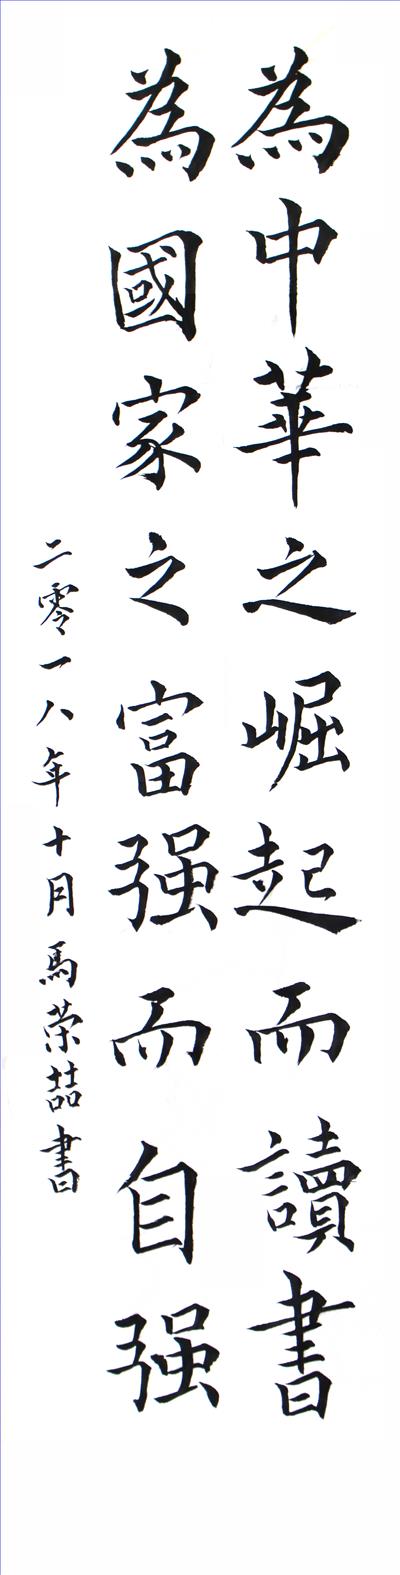 為中華之崛起而讀書
為國家之富强而自强
二零一八年十月馬荣喆書